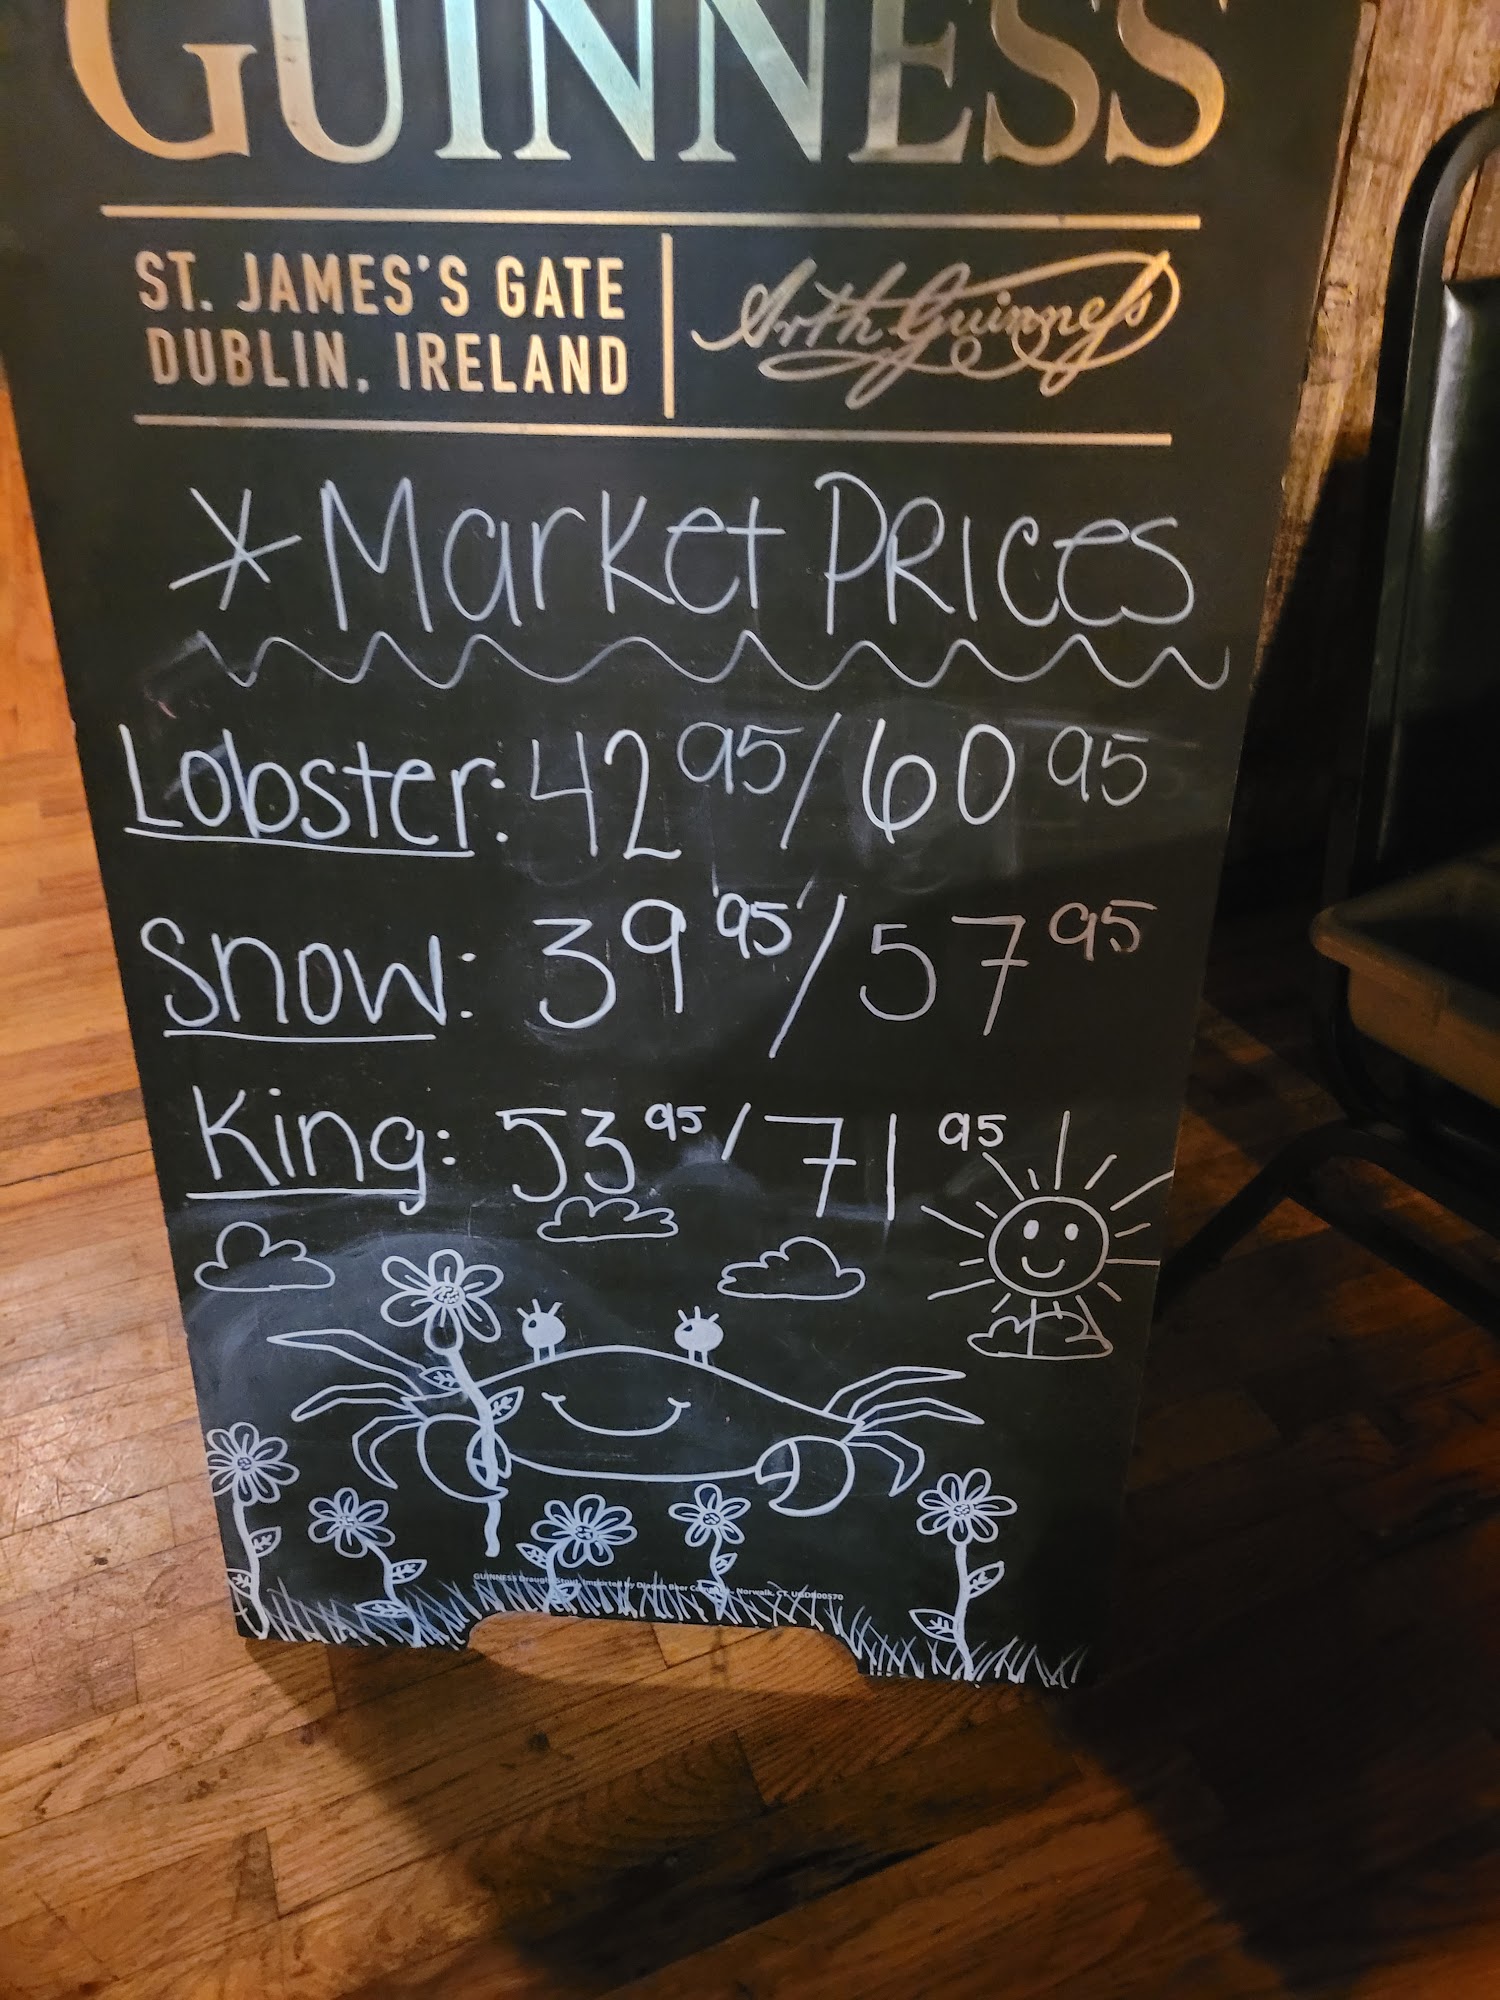 GUINNESS
ST. JAMES'S GATE
DUBLIN, IRELAND
Arth Guinness
* Market PRICES
Lobster: 42 95 / 60 95
Snow: 39 95 / 57 95
King: 53 95 / 71 95
GUINNESS Draught Stout, Imported by Diageo Beer Norwalk, CT.